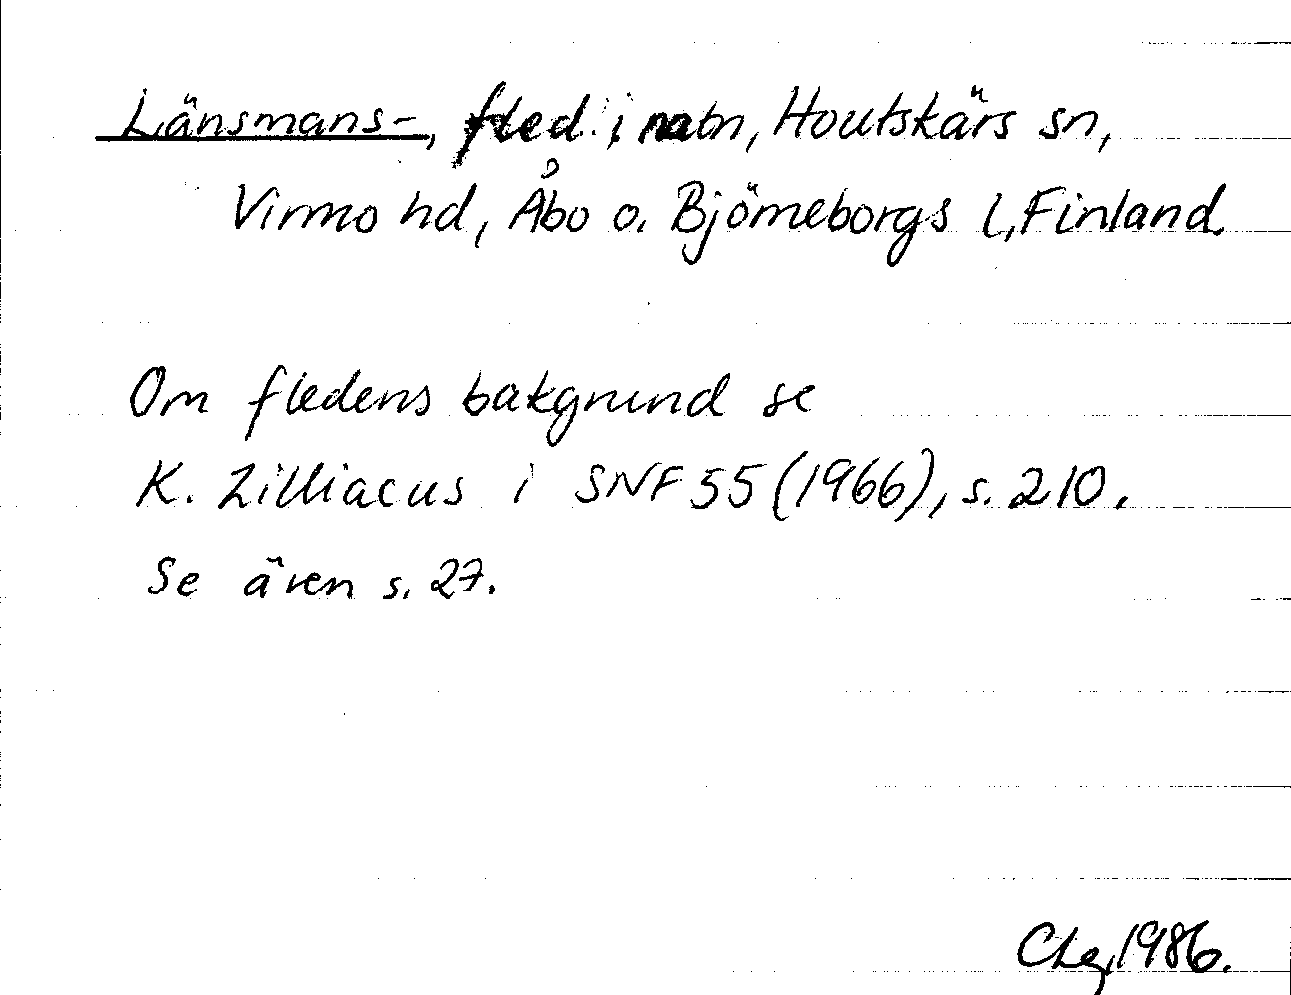 Länsmans-, fled i natn, Houtskärs sn,
Virmo hd, Åbo o. Björneborgs l, Finland.
Om fledens bakgrund se
K. Zilliacus i SNF 55 (1966), s. 210.
Se även s. 27.
1986.